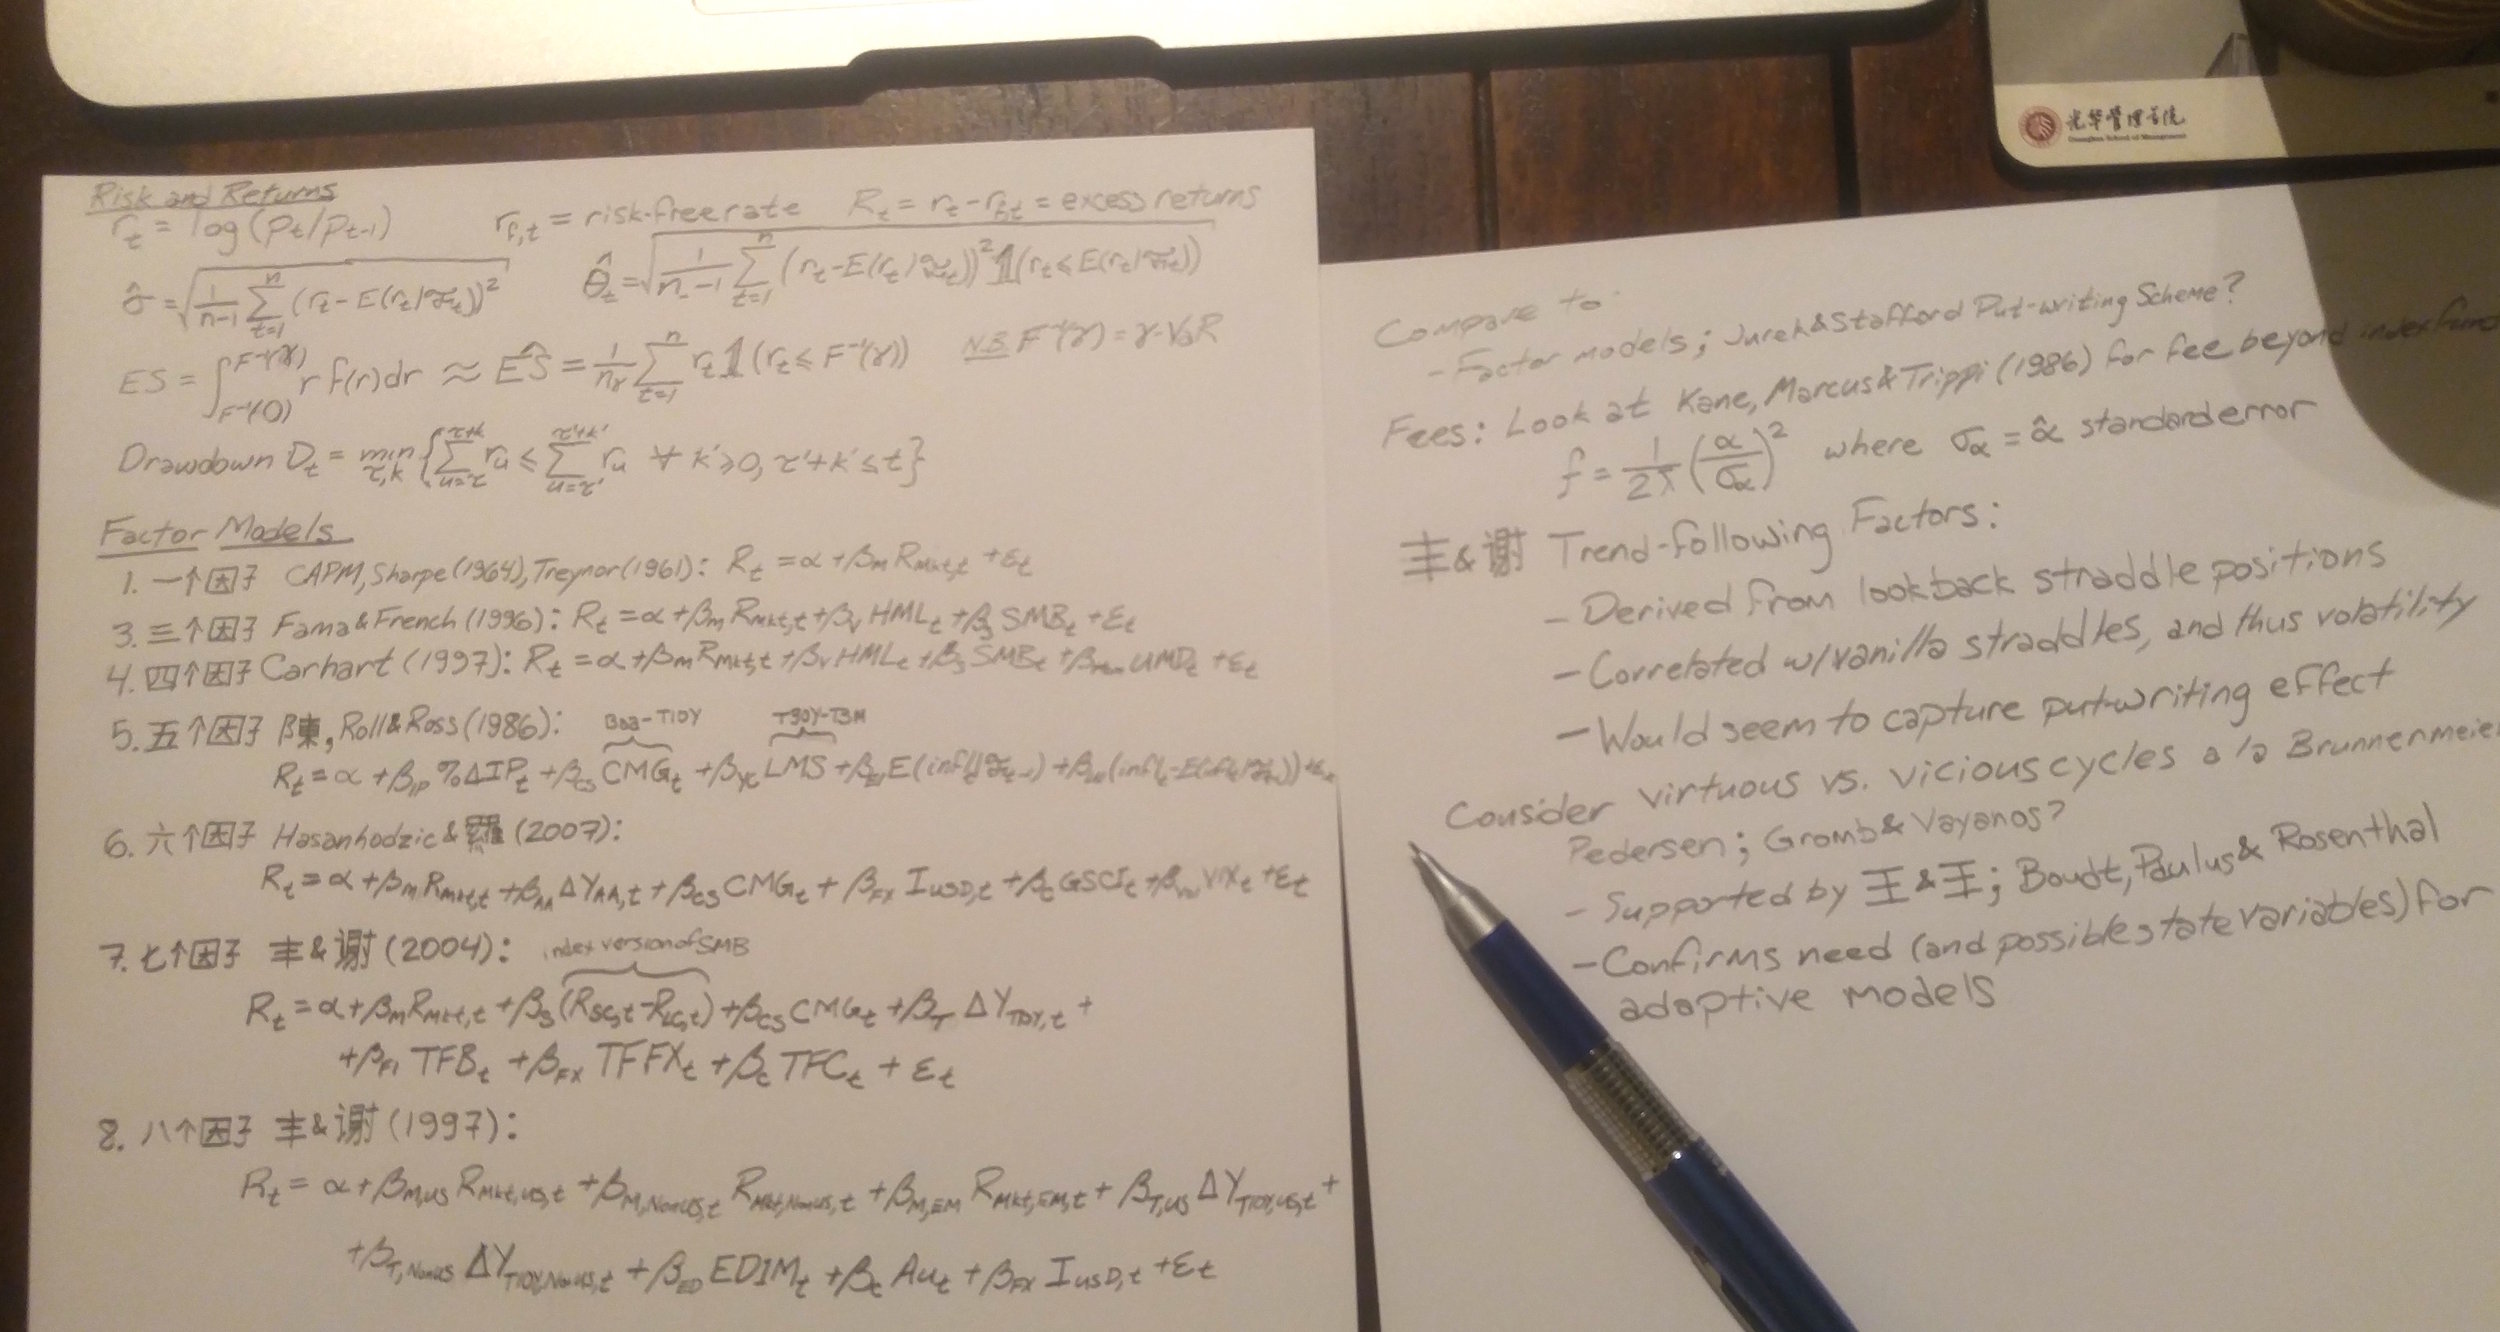 光华管理学院
Guanghua School of Management
Risk and Returns
r_t = log(p_t/p_{t-1})   r_{f,t} = risk-free rate   R_t = r_t - r_{f,t} = excess returns
σ̂ = √(1/(n-1) Σ_{t=1}^{n} (r_t - E(r_t|ℱ_t))²)   θ̂_t = √(1/(n_- -1) Σ_{t=1}^{n} (r_t - E(r_t|ℱ_t))² 𝟙(r_t ≤ E(r_t|ℱ_t)))
ES = ∫_{F⁻¹(0)}^{F⁻¹(γ)} r f(r) dr ≈ ÊS = 1/n_γ Σ_{t=1}^{n} r_t 𝟙(r_t ≤ F⁻¹(γ))   N.B. F⁻¹(γ) = γ-VaR
Drawdown D_t = min_{τ,k} {Σ_{u=τ}^{τ+k} r_u ≤ Σ_{u=τ'}^{τ'+k'} r_u ∀ k' ≥ 0, τ'+k' ≤ t}
Factor Models
1. 一个因子 CAPM, Sharpe (1964), Treynor (1961): R_t = α + β_m R_{Mkt,t} + ε_t
3. 三个因子 Fama & French (1996): R_t = α + β_m R_{Mkt,t} + β_v HML_t + β_s SMB_t + ε_t
4. 四个因子 Carhart (1997): R_t = α + β_m R_{Mkt,t} + β_v HML_t + β_s SMB_t + β_{Mom} UMD_t + ε_t
5. 五个因子 陳, Roll & Ross (1986): Baa-T10Y   T30Y-T3M
R_t = α + β_{IP} %ΔIP_t + β_{CS} CMG_t + β_{YC} LMS + β_{EI} E(infl_t|ℱ_{t-1}) + (infl_t - E(infl_t|ℱ_{t-1})) + ε_t
6. 六个因子 Hasanhodzic & 羅 (2007):
R_t = α + β_m R_{Mkt,t} + β_{AA} ΔY_{AA,t} + β_{CS} CMG_t + β_{FX} I_{USD,t} + β_C GSCI_t + β_{Vol} VIX_t + ε_t
7. 七个因子 丰&谢 (2004): index version of SMB
R_t = α + β_m R_{Mkt,t} + β_s (R_{SC,t} - R_{LC,t}) + β_{CS} CMG_t + β_T ΔY_{T10Y,t} +
+ β_{FI} TFB_t + β_{FX} TFFX_t + β_C TFC_t + ε_t
8. 八个因子 丰&谢 (1997):
R_t = α + β_{M,US} R_{Mkt,US,t} + β_{M,NonUS,t} R_{Mkt,NonUS,t} + β_{M,EM} R_{Mkt,EM,t} + β_{T,US} ΔY_{T10Y,US,t} +
+ β_{T,NonUS} ΔY_{T10Y,NonUS,t} + β_{ED} EDIM_t + β_t Au_t + β_{FX} I_{USD,t} + ε_t
Compare to:
- Factor models; Jurek & Stafford Put-writing Scheme?
Fees: Look at Kane, Marcus & Trippi (1986) for fee beyond index fund
f = 1/(2λ) (α/σ_α)² where σ_α = α̂ standard error
丰&谢 Trend-following Factors:
- Derived from lookback straddle positions
- Correlated w/vanilla straddles, and thus volatility
- Would seem to capture put-writing effect
Consider virtuous vs. vicious cycles a la Brunnermeier
Pedersen; Gromb & Vayanos?
- Supported by 王&王; Boudt, Paulus & Rosenthal
- Confirms need (and possible state variables) for
adaptive models